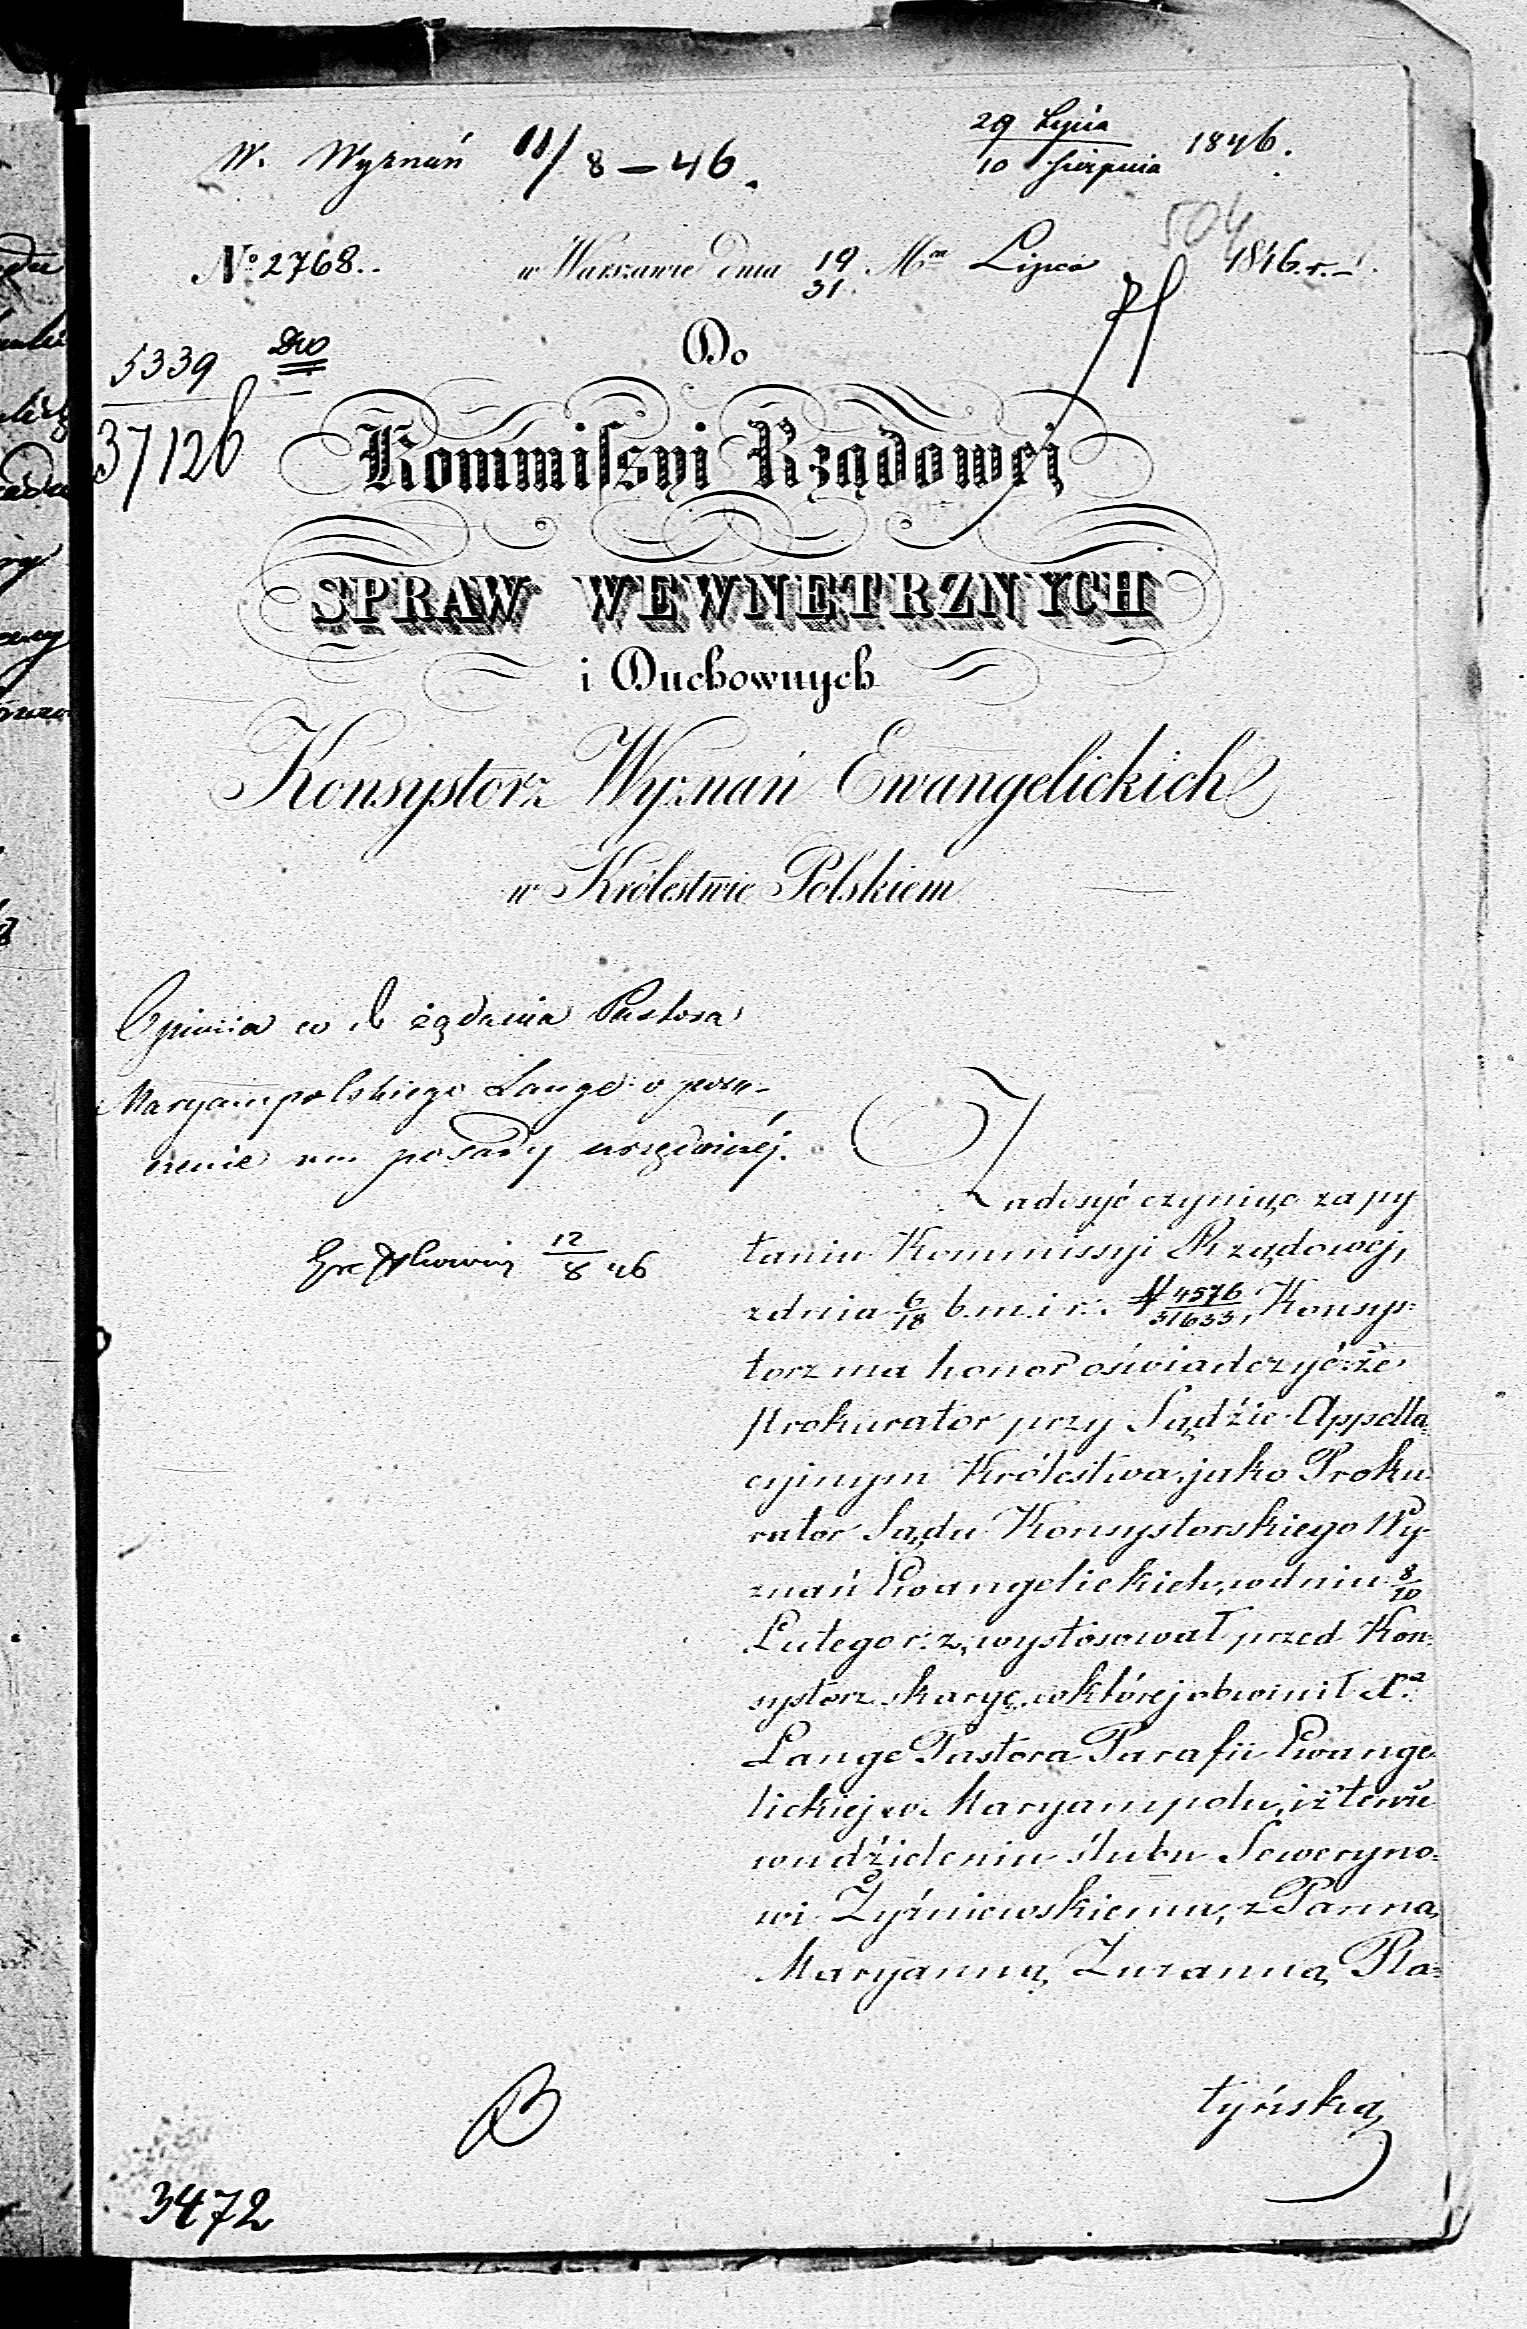 W. Wyznań 11/8 – 46.
29 Lipca
10 Sierpnia 1846.
504
No 2768..
w Warszawie dnia 19/31 Mca Lipca 1846 r. –
5339
37126
Do
Kommissyi Rządowej
SPRAW WEWNETRZNYCH
i Duchownych
Konsystorz Wyznań Ewangelickich
w Królestwie Polskiem
Opinia co do żądania Pastora
Maryampolskiego Lange o porę-
czenie mu posady urzędniczéj.
12/8 46
Zadosyć czyniąc zapy
taniu Kommissyi Rządowej,
z dnia 6/18 b. m. i r. N 4576/31633, Konsys=
torz ma honor oświadczyć: że
Prokurator przy Sądzie Appella=
cyjnym Królestwa, jako Proku
rator Sądu Konsystorskiego Wy=
znań Ewangelickich, w dniu 8/20
Lutego r. z, wystosował przed Kon=
systorz skargę, w której obwinił Xa
Lange Pastora Parafii Ewange=
lickiej w Maryampolu, iż tenże
w udzieleniu ślubu Seweryno=
wi Żyźniewskiemu, z Panną
Maryanną Zuzanną Pla=
tyńską
3472